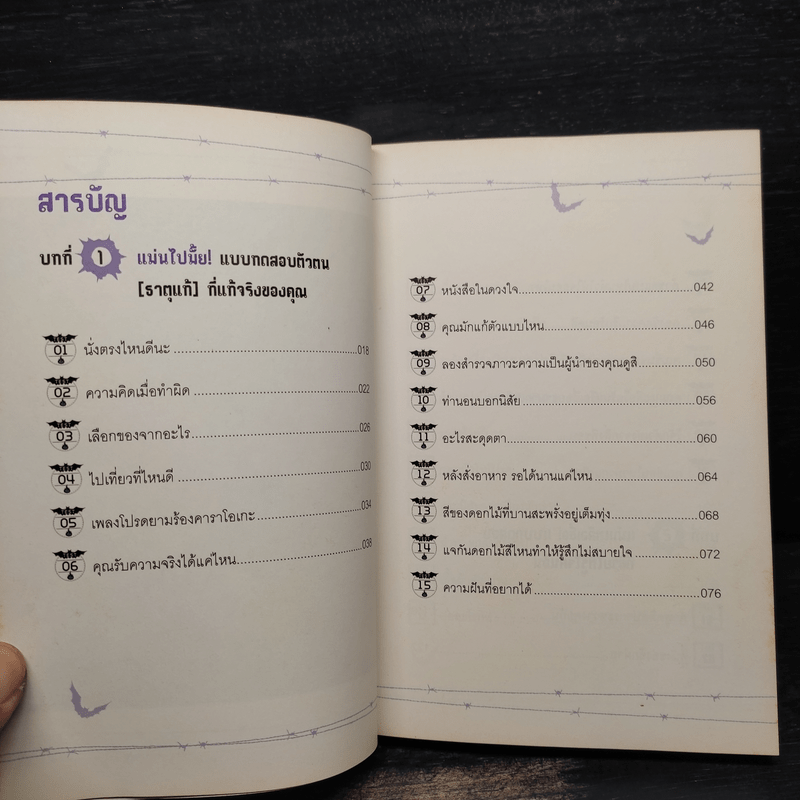 สารบัญ
บทที่ 1 แม่นไปมั้ย! แบบทดสอบตัวตน
[ธาตุแท้] ที่แท้จริงของคุณ
01 นั่งตรงไหนดีนะ 018
02 ความคิดเมื่อทำผิด 022
03 เลือกของจากอะไร 026
04 ไปเที่ยวที่ไหนดี 030
05 เพลงโปรดยามร้องคาราโอเกะ 034
06 คุณรับความจริงได้แค่ไหน 038
07 หนังสือในดวงใจ 042
08 คุณมักแก้ตัวแบบไหน 046
09 ลองสำรวจภาวะความเป็นผู้นำของคุณดูสิ 050
10 ท่านอนบอกนิสัย 056
11 อะไรสะดุดตา 060
12 หลังสั่งอาหาร รอได้นานแค่ไหน 064
13 สีของดอกไม้ที่บานสะพรั่งอยู่เต็มทุ่ง 068
14 แจกันดอกไม้สีไหนทำให้รู้สึกไม่สบายใจ 072
15 ความฝันที่อยากได้ 076